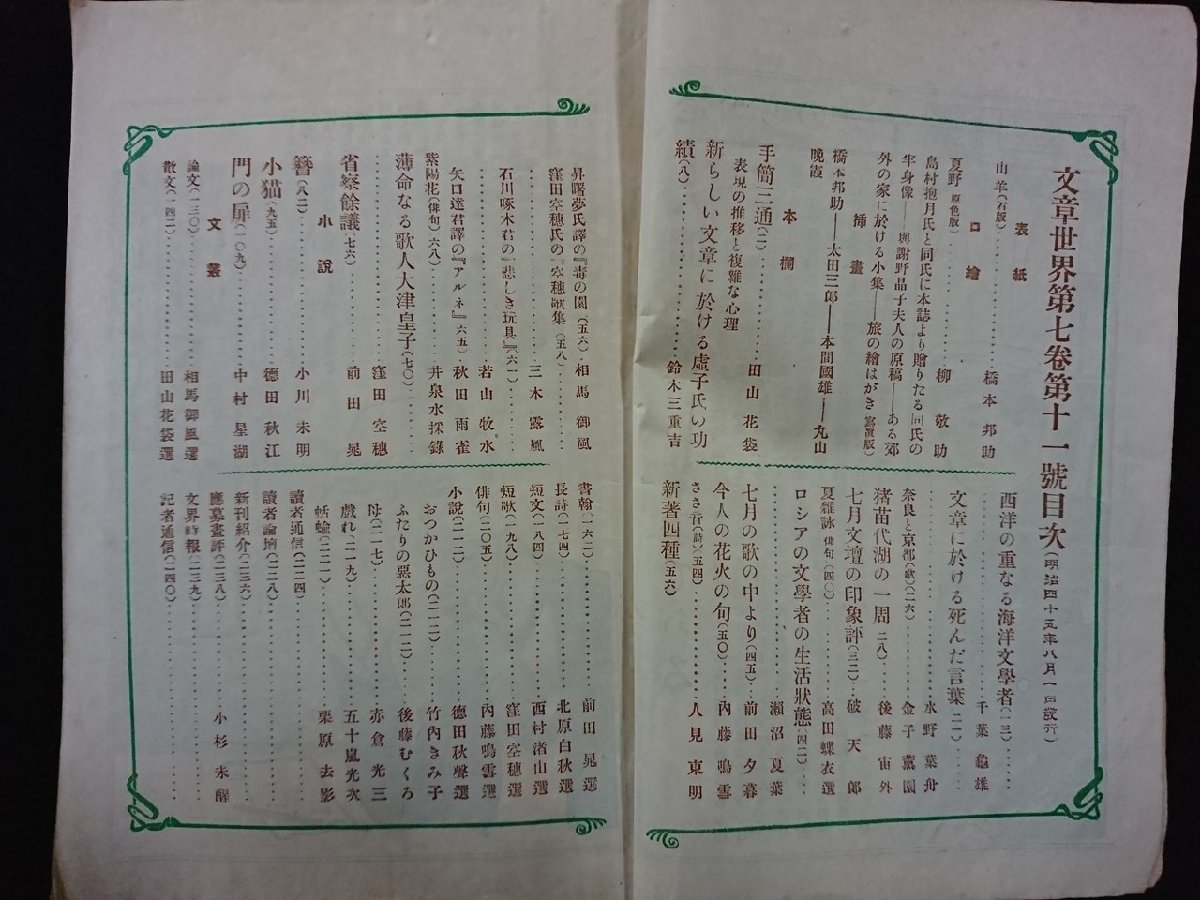 文章世界第七卷第十一號目次(明治四十五年八月一日發行)
表紙
山羊(石版)……橋本邦助
口繪
夏野(原色版)……柳敬助
島村抱月氏と同氏に本誌より贈りたる同氏の
半身像——與謝野晶子夫人の原稿——ある郊
外の家に於ける小集——旅の繪はがき(寫眞版)
挿畫
橋本邦助——太田三郎——本間國雄——丸山
晩霞
本欄
手簡三通(二)……田山花袋
表現の推移と複雜な心理
新らしい文章に於ける虚子氏の功
績(八)……鈴木三重吉
西洋の重なる海洋文學者(一三)……
千葉龜雄
文章に於ける死んだ言葉(二一)……
……水野葉舟
奈良と京都(歌)(二六)……金子薰園
猪苗代湖の一周(二八)……後藤宙外
七月文壇の印象評(三二)……破天郎
夏雜詠(俳句)(四〇)……高田蝶衣選
ロシアの文學者の生活狀態(四二)
……瀬沼夏葉
七月の歌の中より(四五)……前田夕暮
今人の花火の句(五〇)……內藤鳴雪
ささ音(詩)(五四)……人見東明
新著四種(五六)
昇曙夢氏譯の『毒の園』(五六)……相馬御風
窪田空穗氏の『空穗歌集』(五八)……
……三木露風
石川啄木君の『悲しき玩具』(六一)……
……若山牧水
矢口達君譯の『アルネ』(六五)……秋田雨雀
紫陽花(俳句)(六八)……井泉水採錄
薄命なる歌人大津皇子(七〇)……
……窪田空穗
省察餘議(七六)……前田晁
小說
簪(八二)……小川未明
小猫(九五)……德田秋江
門の扉(一〇九)……中村星湖
文叢
論文(一三〇)……相馬御風選
散文(一四二)……田山花袋選
書翰(一六二)……前田晁選
長詩(一七四)……北原白秋選
短文(一八四)……西村渚山選
短歌(一九八)……窪田空穗選
俳句(二〇五)……內藤鳴雪選
小說(二一二)……德田秋聲選
おつかひもの(二一二)……竹內きみ子
ふたりの惡太郎(二一二)……後藤むくろ
母(二一七)……赤倉光三
戲れ(二一九)……五十嵐光次
蛞蝓(二二一)……栗原去影
讀者通信(二二四)
讀者論壇(二二八)……
新刊紹介(二三六)……
應募畫評(二三八)……小杉未醒
文界時報(二三九)……
記者通信(二四〇)……